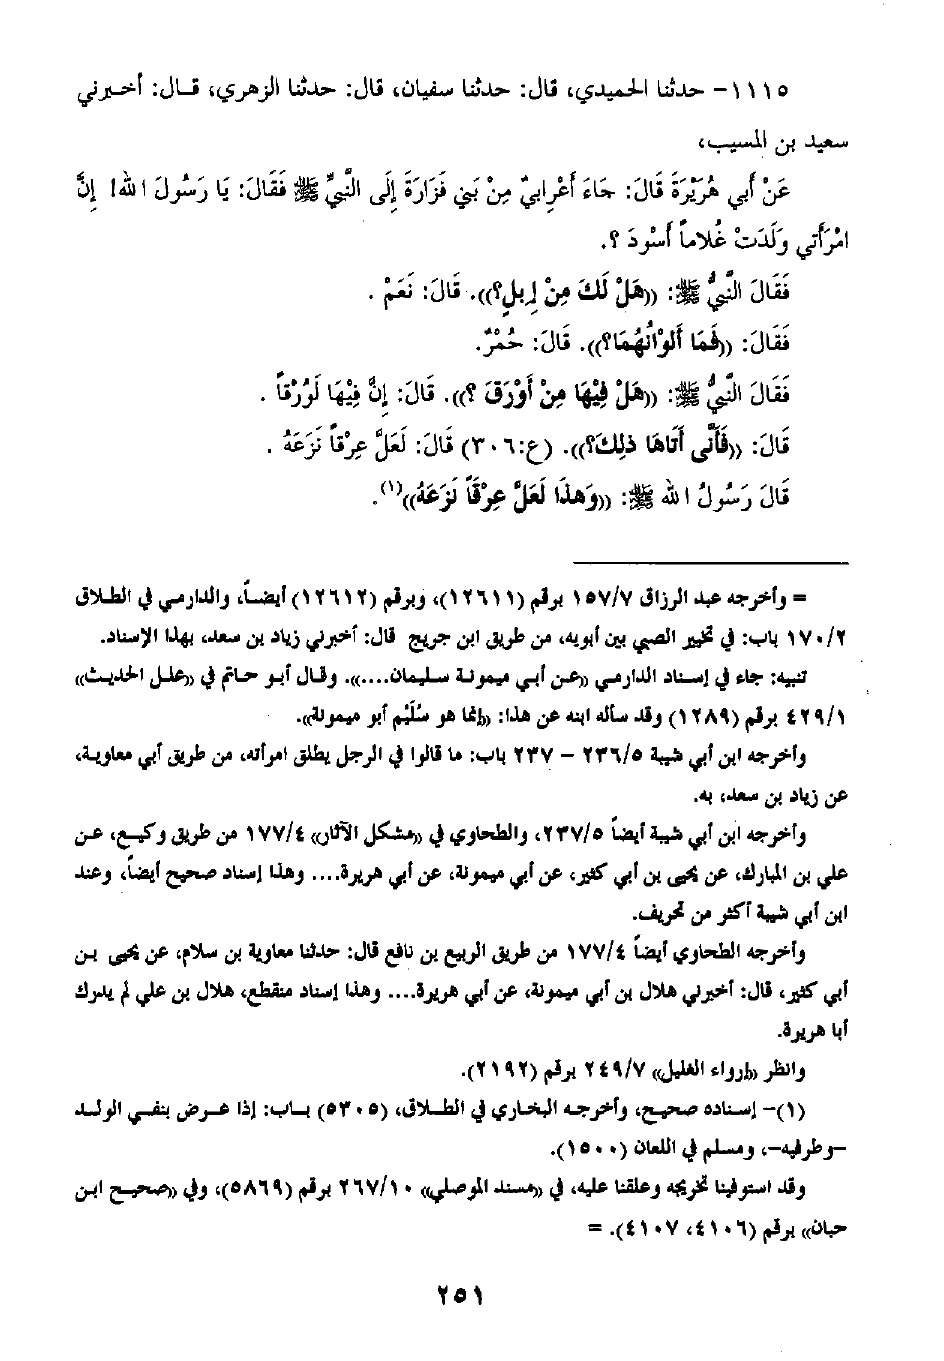 ١١١٥- حدثنا الحميدي، قال: حدثنا سفيان، قال: حدثنا الزهري، قـال: أخـبرني
سعيد بن المسيب،
عَنْ أَبي هُرَيْرَةَ قَالَ: جَاءَ أَعْرابيٌ مِنْ بَنِي فَزَارَةَ إِلَى النَّبِيِّ ﷺ فَقَالَ: يَا رَسُولَ الله! إنَّ
امْرَأَتي وَلَدَتْ غُلاماً أَسْودَ ؟.
فَقَالَ النَّبِيُّ ﷺ: ((هَلْ لَكَ مِنْ إِبلٍ؟)). قَالَ: نَعَمْ .
فَقَالَ: ((فَمَا أَلوَانُهُمَا؟)). قَالَ: حُمْرٌ.
فَقَالَ النَّبِيُّ ﷺ: ((هَلْ فِيْهَا مِنْ أَوْرَقَ ؟)). قَالَ: إِنَّ فِيْهَا لَوُرْقاً .
قَالَ: ((فَأَنَّى أَتَاهَا ذلِكَ؟)). (ع:٣٠٦) قَالَ: لَعَلَّ عِرْقاً نَزَعَهُ .
قَالَ رَسُولُ الله ﷺ: ((وَهذَا لَعَلَّ عِرْقَاً نَزَعَهُ))(١).
= وأخرجه عبد الرزاق ١٥٧/٧ برقم (١٢٦١١)، وبرقم (١٢٦١٢) أيضـاً، والدارمي في الطلاق
١٧٠/٢ باب: في تخيير الصبي بين أبويه، من طريق ابن جريج قال: أخبرني زياد بن سعد، بهذا الإسناد.
تنبيه: جاء في إسناد الدارمي ((عـن أبـي ميمونـة سـليمان....)). وقـال أبـو حـاتم في ((علـل الحديـث))
٤٢٩/١ برقم (١٢٨٩) وقد سأله ابنه عن هذا: ((إنما هو سُلَيْم أبو ميمونة)).
وأخرجه ابن أبي شيبة ٢٣٦/٥ – ٢٣٧ باب: ما قالوا في الرجل يطلق امرأته، من طريق أبي معاويـة،
عن زياد بن سعد، به.
وأخرجه ابن أبي شيبة أيضاً ٢٣٧/٥، والطحاوي في ((مشكل الآثار)) ١٧٧/٤ من طريق وكيـع، عـن
علي بن المبارك، عن يحيى بن أبي كثير، عن أبي ميمونة، عن أبي هريرة.... وهذا إسناد صحيح أيضاً، وعند
ابن أبي شيبة أكثر من تحريف.
وأخرجه الطحاوي أيضاً ١٧٧/٤ من طريق الربيع بن نافع قال: حدثنا معاوية بن سلام، عن يحيى بـن
أبي كثير، قال: أخبرني هلال بن أبي ميمونة، عن أبي هريرة.... وهذا إسناد منقطع، هلال بن علي لم يدرك
أبا هريرة.
وانظر ((إرواء الغليل)) ٢٤٩/٧ برقم (٢١٩٢).
(١)- إسناده صحيح، وأخرجه البخاري في الطلاق، (٥٣٠٥) بـاب: إذا عـرض بنفـي الولـد
-وطرفيه-، ومسلم في اللعان (١٥٠٠).
وقد استوفينا تخريجه وعلقنا عليه، في ((مسند الموصلي)) ٢٦٧/١٠ برقم (٥٨٦٩)، وفي ((صحيح ابـن
حبان)) برقم (٤١٠٦، ٤١٠٧). =
٢٥١